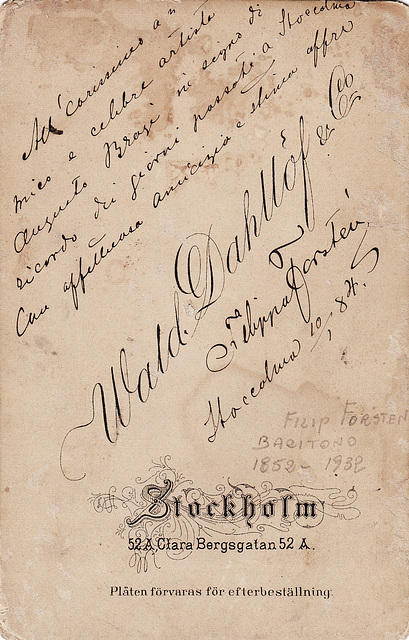 All' carissimo a =
mico e celebre artista
Augusto Brogi in segno di
ricordo dei giorni passati a Stoccolma
Con affettuosa amicizia e stima offre
Wald. Dahllöf & Co
Filippo Forstén
Stoccolma 10/5 84.
FILIP FORSTEN
BARITONO
1852-1932
Stockholm
52 A, Clara Bergsgatan 52 A.
Plåten förvaras för efterbeställning.